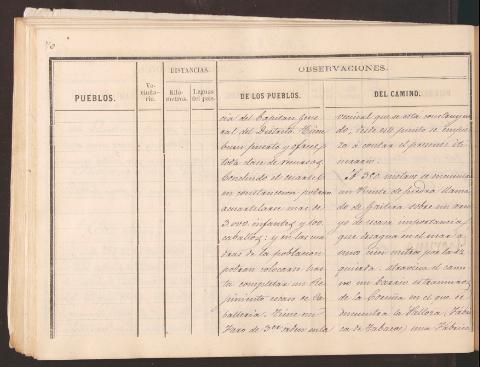 70
PUEBLOS.
Ve-
cinda-
rio.
DISTANCIAS.
Kiló-
metros.
Leguas
del país.
OBSERVACIONES.
DE LOS PUEBLOS.
DEL CAMINO.
cia del Capitan Gene
ral del Distrito. Tiene
buen puerto y ofrece
toda clase de recursos.
Concluido el cuartel
en construccion podran
acuartelarse más de
3.000 infantes y 400
caballos: y en las cua
dras de la poblacion
podran colocarse has
ta completar un Re
gimiento escaso de Ca
balleria. Tiene un
Faro de 3er orden en la
vecinal que se esta construyen
do; desde este punto se empie
za á contar el presente iti
nerario.
A 320 metros se encuentra
un Puente de piedra llama
do de Gaiteira sobre un arro
yo de escasa importancia
que desagua en el mar á
unos cien metros por la iz
quierda: atraviesa el cami
no un barrio estramuros
de la Coruña en el que se
encuentra la Palloza, Fabri
ca de Tabacos, una Fabrica